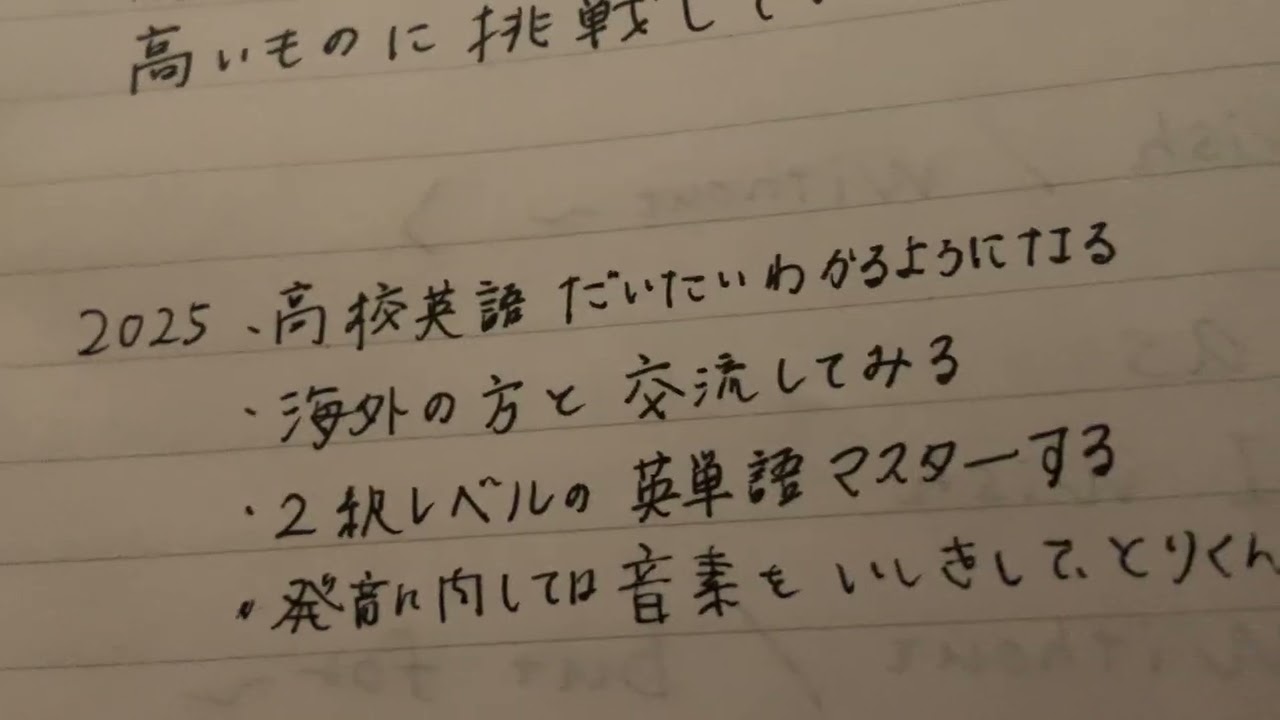 高いものに挑戦して
2025、高校英語だいたいわかるようになる
・海外の方と交流してみる
・2級レベルの英単語マスターする
・発音に関しては音素をいしきして、とりくん